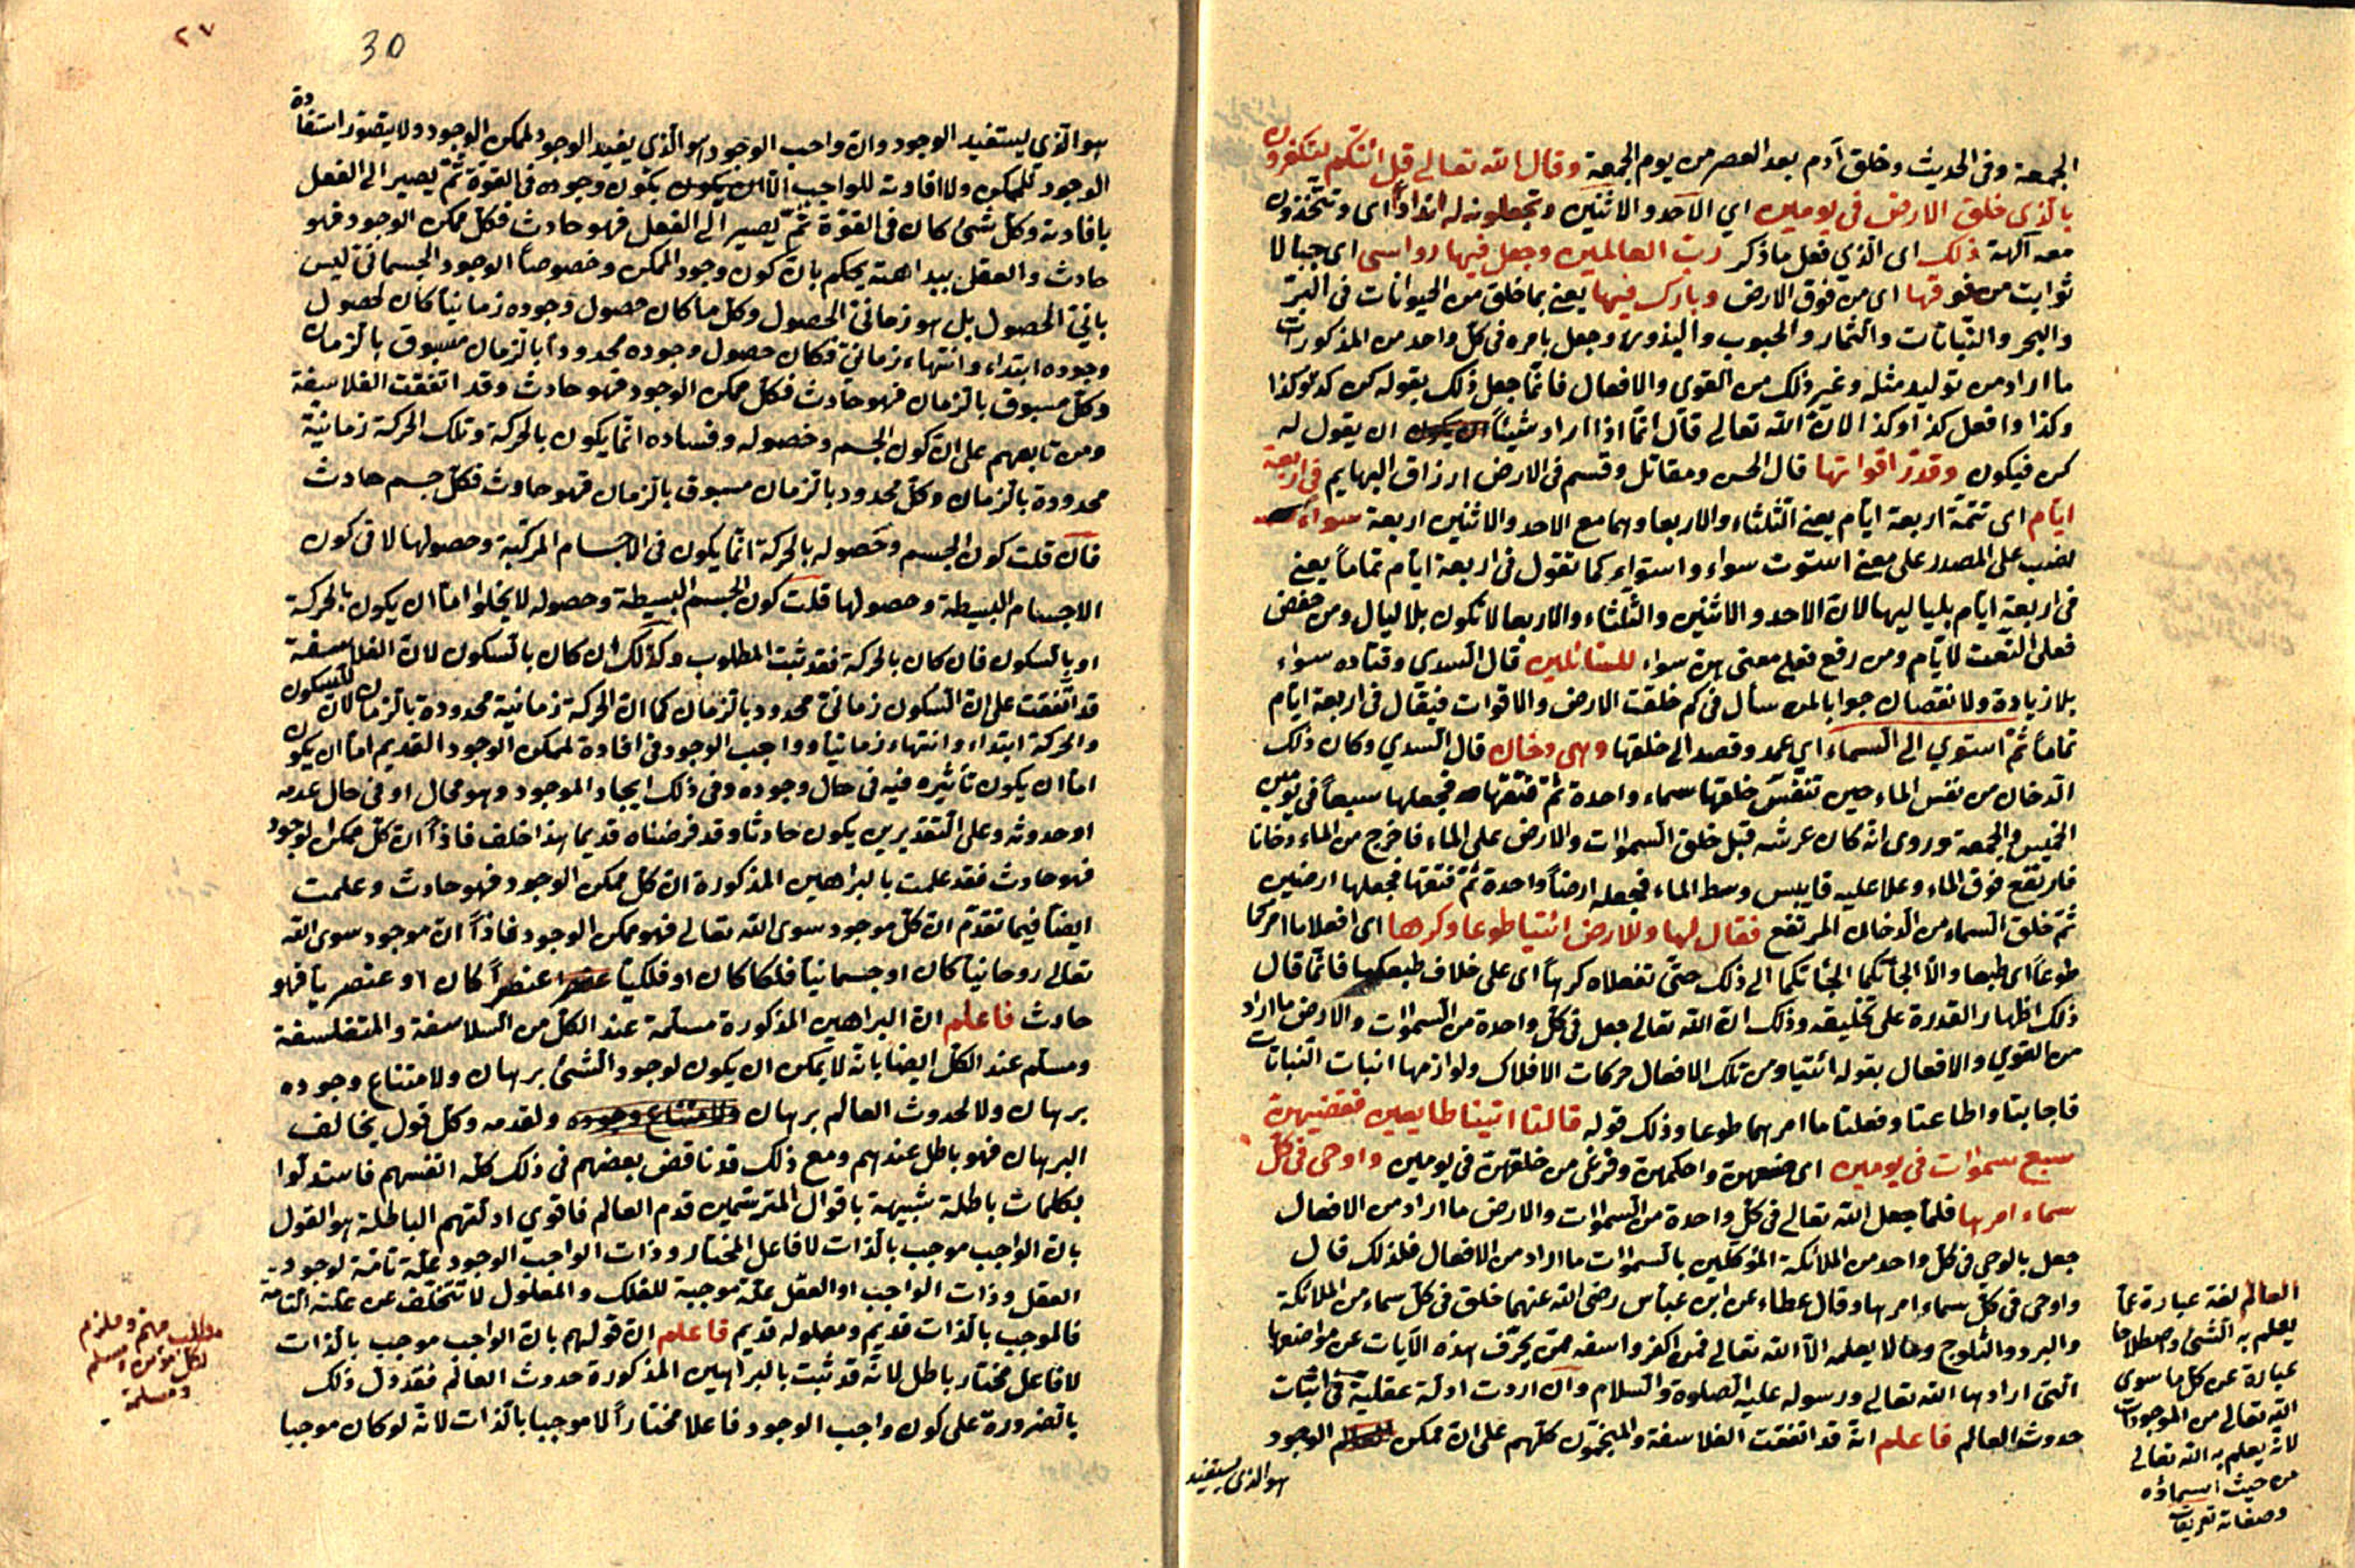 الجمعة وفى الحديث وخلق آدم بعد العصر من يوم الجمعة وقال الله تعالى قل ائنكم لتكفرون
بالذى خلق الارض فى يومين اي الاحد والاثنين وتجعلون له اندادا اى وتتخذون
معه آلهة ذلك اى الذي فعل ما ذكر رب العالمين وجعل فيها رواسى اى جبالا
ثوابت من فوقها اى من فوق الارض وبارك فيها يعنى بما خلق من الحيوانات فى البر
والبحر والنباتات والثمار والحبوب والبذور وجعل بامره فى كل واحد من المذكورات
ما اراد من توليد مثله وغير ذلك من القوى والافعال فانما جعل ذلك بقوله كن كذا وكذا
وكذا وافعل كذا وكذا لان الله تعالى قال انما اذا اراد شيئا ان يقول له
كن فيكون وقدر اقواتها قال الحسن ومقاتل وقسم فى الارض ارزاق البهايم فى اربعة
ايام اى تتمة اربعة ايام يعنى الثلثاء والاربعا وهما مع الاحد والاثنين اربعة سواء
نصب على المصدر على معنى استوت سواء واستواء كما تقول فى اربعة ايام تماما يعنى
فى اربعة ايام بلياليها لان الاحد والاثنين والثلثاء والاربعا لا تكون بلا ليال ومن خفض
فعلى النعت لايام ومن رفع فعلى معنى هن سواء للسائلين قال السدى وقتاده سواء
بلا زيادة ولا نقصان جوابا لمن سأل فى كم خلقت الارض والاقوات فيقال فى اربعة ايام
تماما ثم استوي الى السماء اي عمد وقصد الى خلقها وهى دخان قال السدي وكان ذلك
الدخان من نفس الماء حين تنفس خلقها سماء واحدة ثم فتقها فجعلها سبعا فى يومين
الخميس والجمعة وروى انه كان عرشه قبل خلق السموات والارض على الماء فاخرج من الماء دخانا
فارتفع فوق الماء وعلا عليه فايبس وسط الماء فجعله ارضا واحدة ثم فتقها فجعلها ارضين
ثم خلق السماء من الدخان المرتفع فقال لها وللارض ائتيا طوعا وكرها اى افعلا ما امركما
طوعا اى طبعا والا الجأتكما الى ذلك حتى تفعلاه كرها اى على خلاف طبعكما فانما قال
ذلك اظهار القدرة على تخليقه وذلك ان الله تعالى جعل فى كل واحدة من السموات والارض ما اراد
من القوي والافعال بقوله ائتيا ومن تلك الافعال حركات الافلاك ولوازمها انبات النباتات
فاجابتا واطاعتا وفعلتا ما امرهما طوعا وذلك قوله قالتا اتينا طايعين فقضيهن
سبع سموات فى يومين اى صنعهن واحكمهن وفرغ من خلقهن فى يومين واوحى فى كل
سماء امرها فلما جعل الله تعالى فى كل واحدة من السموات والارض ما اراد من الافعال
جعل بالوحى فى كل واحد من الملائكة المؤكلين بالسموات ما اراد من الافعال فلذلك قال
واوحى فى كل سماء امرها وقال عطاء عن ابن عباس رضى الله عنهما خلق فى كل سماء من الملائكة
والبرد والثلوج وما لا يعلمه الا الله تعالى فمن اكفر واسفه ممن يحرف هذه الآيات عن مواضعها
التى ارادها الله تعالى ورسوله عليه الصلوة والسلام وان اردت ادلة عقلية فى اثبات
حدوث العالم فاعلم انه قد اتفقت الفلاسفة والمنجمون كلهم على ان ممكن الوجود
هو الذى يستفيد
العالم لغة عبارة عما
يعلم به الشئ واصطلاحا
عبارة عن كل ما سوى
الله تعالى من الموجودات
لانه يعلم به الله تعالى
من حيث اسماؤه
وصفاته تعريفات
٢٧
30
هو الذي يستفيد الوجود وان واجب الوجود هو الذي يفيد الوجود لممكن الوجود ولا يتصور استفادة
الوجود للممكن ولا افادته للواجب الا ان يكون وجوده فى القوة ثم يصير الى الفعل
بافادته وكل شئ كان فى القوة ثم يصير الى الفعل فهو حادث فكل ممكن الوجود فهو
حادث والعقل ببداهته يحكم بان كون وجود الممكن وخصوصا الوجود الجسمانى ليس
بانى الحصول بل هو زمانى الحصول وكل ما كان حصول وجوده زمانيا كان لحصول
وجوده ابتداء وانتهاء زمانى فكان حصول وجوده محدودا بالزمان مسبوق بالزمان
وكل مسبوق بالزمان فهو حادث فكل ممكن الوجود فهو حادث وقد اتفقت الفلاسفة
ومن تابعهم على ان كون الجسم وحصوله وفساده انما يكون بالحركة وتلك الحركة زمانية
محدودة بالزمان وكل محدود بالزمان مسبوق بالزمان فهو حادث فكل جسم حادث
فان قلت كون الجسم وحصوله بالحركة انما يكون فى الاجسام المركبة وحصولها لا فى كون
الاجسام البسيطة وحصولها قلت كون الجسم البسيطة وحصوله لا يخلوا اما ان يكون بالحركة
او بالسكون فان كان بالحركة فقد ثبت المطلوب وكذلك ان كان بالسكون لان الفلاسفة
قد اتفقت على ان السكون زمانى محدود بالزمان كما ان الحركة زمانية محدودة بالزمان لان للسكون
والحركة ابتداء وانتهاء زمانيا وواجب الوجود فى افادة لممكن الوجود القديم اما ان يكون
اما ان يكون تأثيره فيه فى حال وجوده وفى ذلك ايجاد الموجود وهو محال او فى حال عدمه
او حدوثه وعلى التقديرين يكون حادثا وقد فرضناه قديما هذا خلف فاذا ان كل ممكن الوجود
فهو حادث فقد علمت بالبراهين المذكورة ان كل ممكن الوجود فهو حادث وعلمت
ايضا فيما تقدم ان كل موجود سوى الله تعالى فهو ممكن الوجود فاذا ان موجود سوى الله
تعالى روحانيا كان او جسمانيا فلكا كان او فلكيا عنصرا كان او عنصريا فهو
حادث فاعلم ان البراهين المذكورة مسلمة عند الكل من الفلاسفة والمتفلسفة
ومسلم عند الكل ايضا بانه لا يمكن ان يكون لوجود الشئ برهان ولامتناع وجوده
برهان ولا لحدوث العالم برهان ولقدمه وكل قول يخالف
البرهان فهو باطل عندهم ومع ذلك قد ناقض بعضهم فى ذلك كله انفسهم فاستدلوا
بكلمات باطلة شبيهة باقوال المترسمين قدم العالم فاقوي ادلتهم الباطلة هو القول
بان الواجب موجب بالذات لا فاعل المختار وذات الواجب الوجود علة تامة لوجود
العقل وذات الواجب او العقل علة موجبة للفلك والمعلول لا تتخلف عن علته التامة
فالموجب بالذات قديم ومعلوله قديم فاعلم ان قولهم بان الواجب موجب بالذات
لا فاعل مختار باطل لانه قد ثبت بالبراهين المذكورة حدوث العالم فقد دل ذلك
بالضرورة على كون واجب الوجود فاعلا مختارا لا موجبا بالذات لانه لو كان موجبا
مطلب مهم وملزم
لكل مؤمن ومسلم
ومسلمة